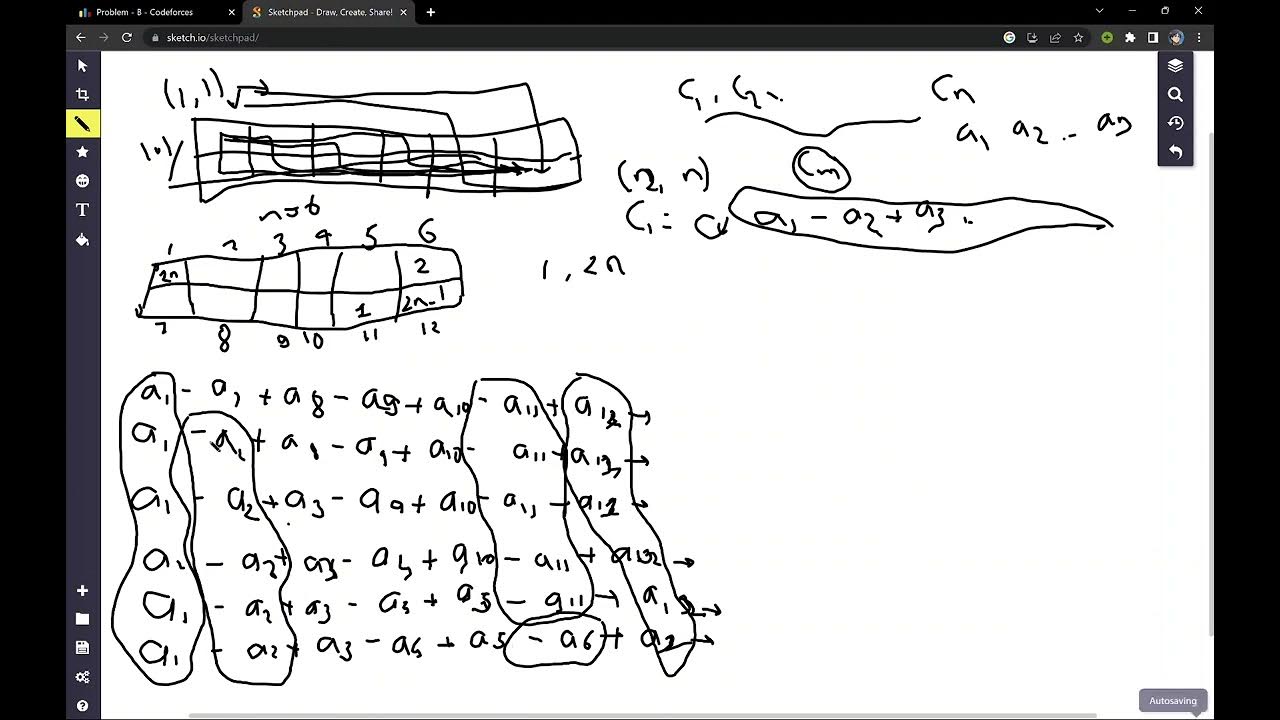 Problem - B - Codeforces
Sketchpad - Draw, Create, Share!
sketch.io/sketchpad/
(1,1)
C1, C2..
Cn
a1 a2 .. a3
Cm
(2, n)
C1 =
a1 - a2 + a3 ..
n=6
1 2 3 4 5 6
2n 2
1 2n-1
7 8 9 10 11 12
1, 2n
a1 - a7 + a8 - a9 + a10 - a11 + a12 →
a1 - a2 + a8 - a9 + a10 - a11 + a12 →
a1 - a2 + a3 - a9 + a10 - a11 + a12 →
a1 - a2 + a3 - a4 + a10 - a11 + a12 →
a1 - a2 + a3 - a4 + a5 - a11 + a12 →
a1 - a2 + a3 - a4 + a5 - a6 + a12 →
T
Autosaving